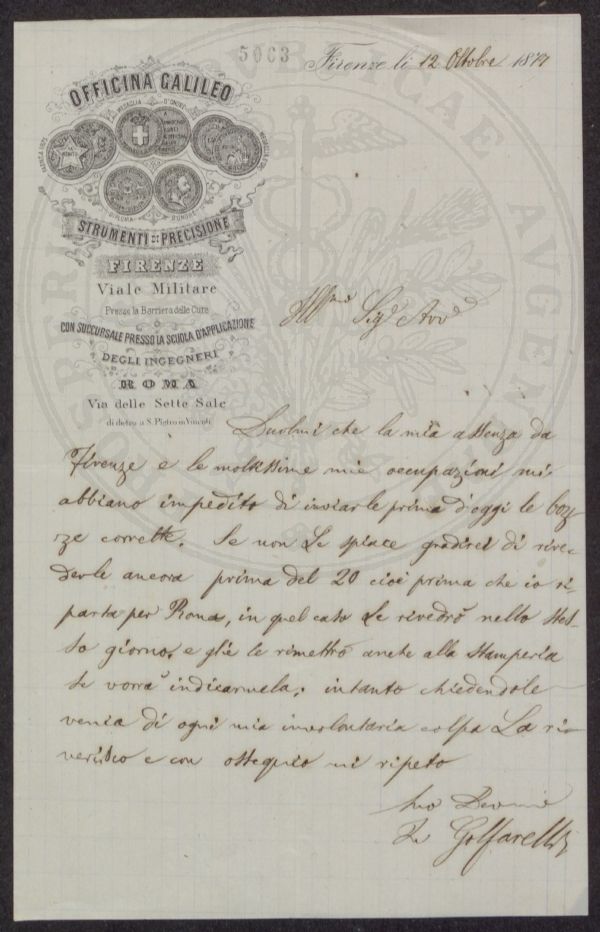 5063
Firenze li 12 Ottobre 1877
OFFICINA GALILEO
MEDAGLIA D'ONORE
DIPLOMA D'ONORE
STRUMENTI DI PRECISIONE
FIRENZE
Viale Militare
Presso la Barriera delle Cure
CON SUCCURSALE PRESSO LA SCUOLA D'APPLICAZIONE
DEGLI INGEGNERI
ROMA
Via delle Sette Sale
di dietro a S. Pietro in Vincoli
Ill.mo Sig.e Avv.e
Duolmi che la mia assenza da
Firenze e le moltissime mie occupazioni mi
abbiano impedito di inviarle prima d'oggi le boz
ze corrette. Se non Le spiace gradirei di rive-
derle ancora prima del 20 cioè prima che io ri-
parta per Roma, in quel caso Le rivedrò nello stes-
so giorno, e glie le rimetterò anche alla Stamperia
se vorrà indicarmela; intanto chiedendole
venia di ogni mia involontaria colpa La ri-
verisco e con ossequio mi ripeto
Suo Devmo
Golfarelli